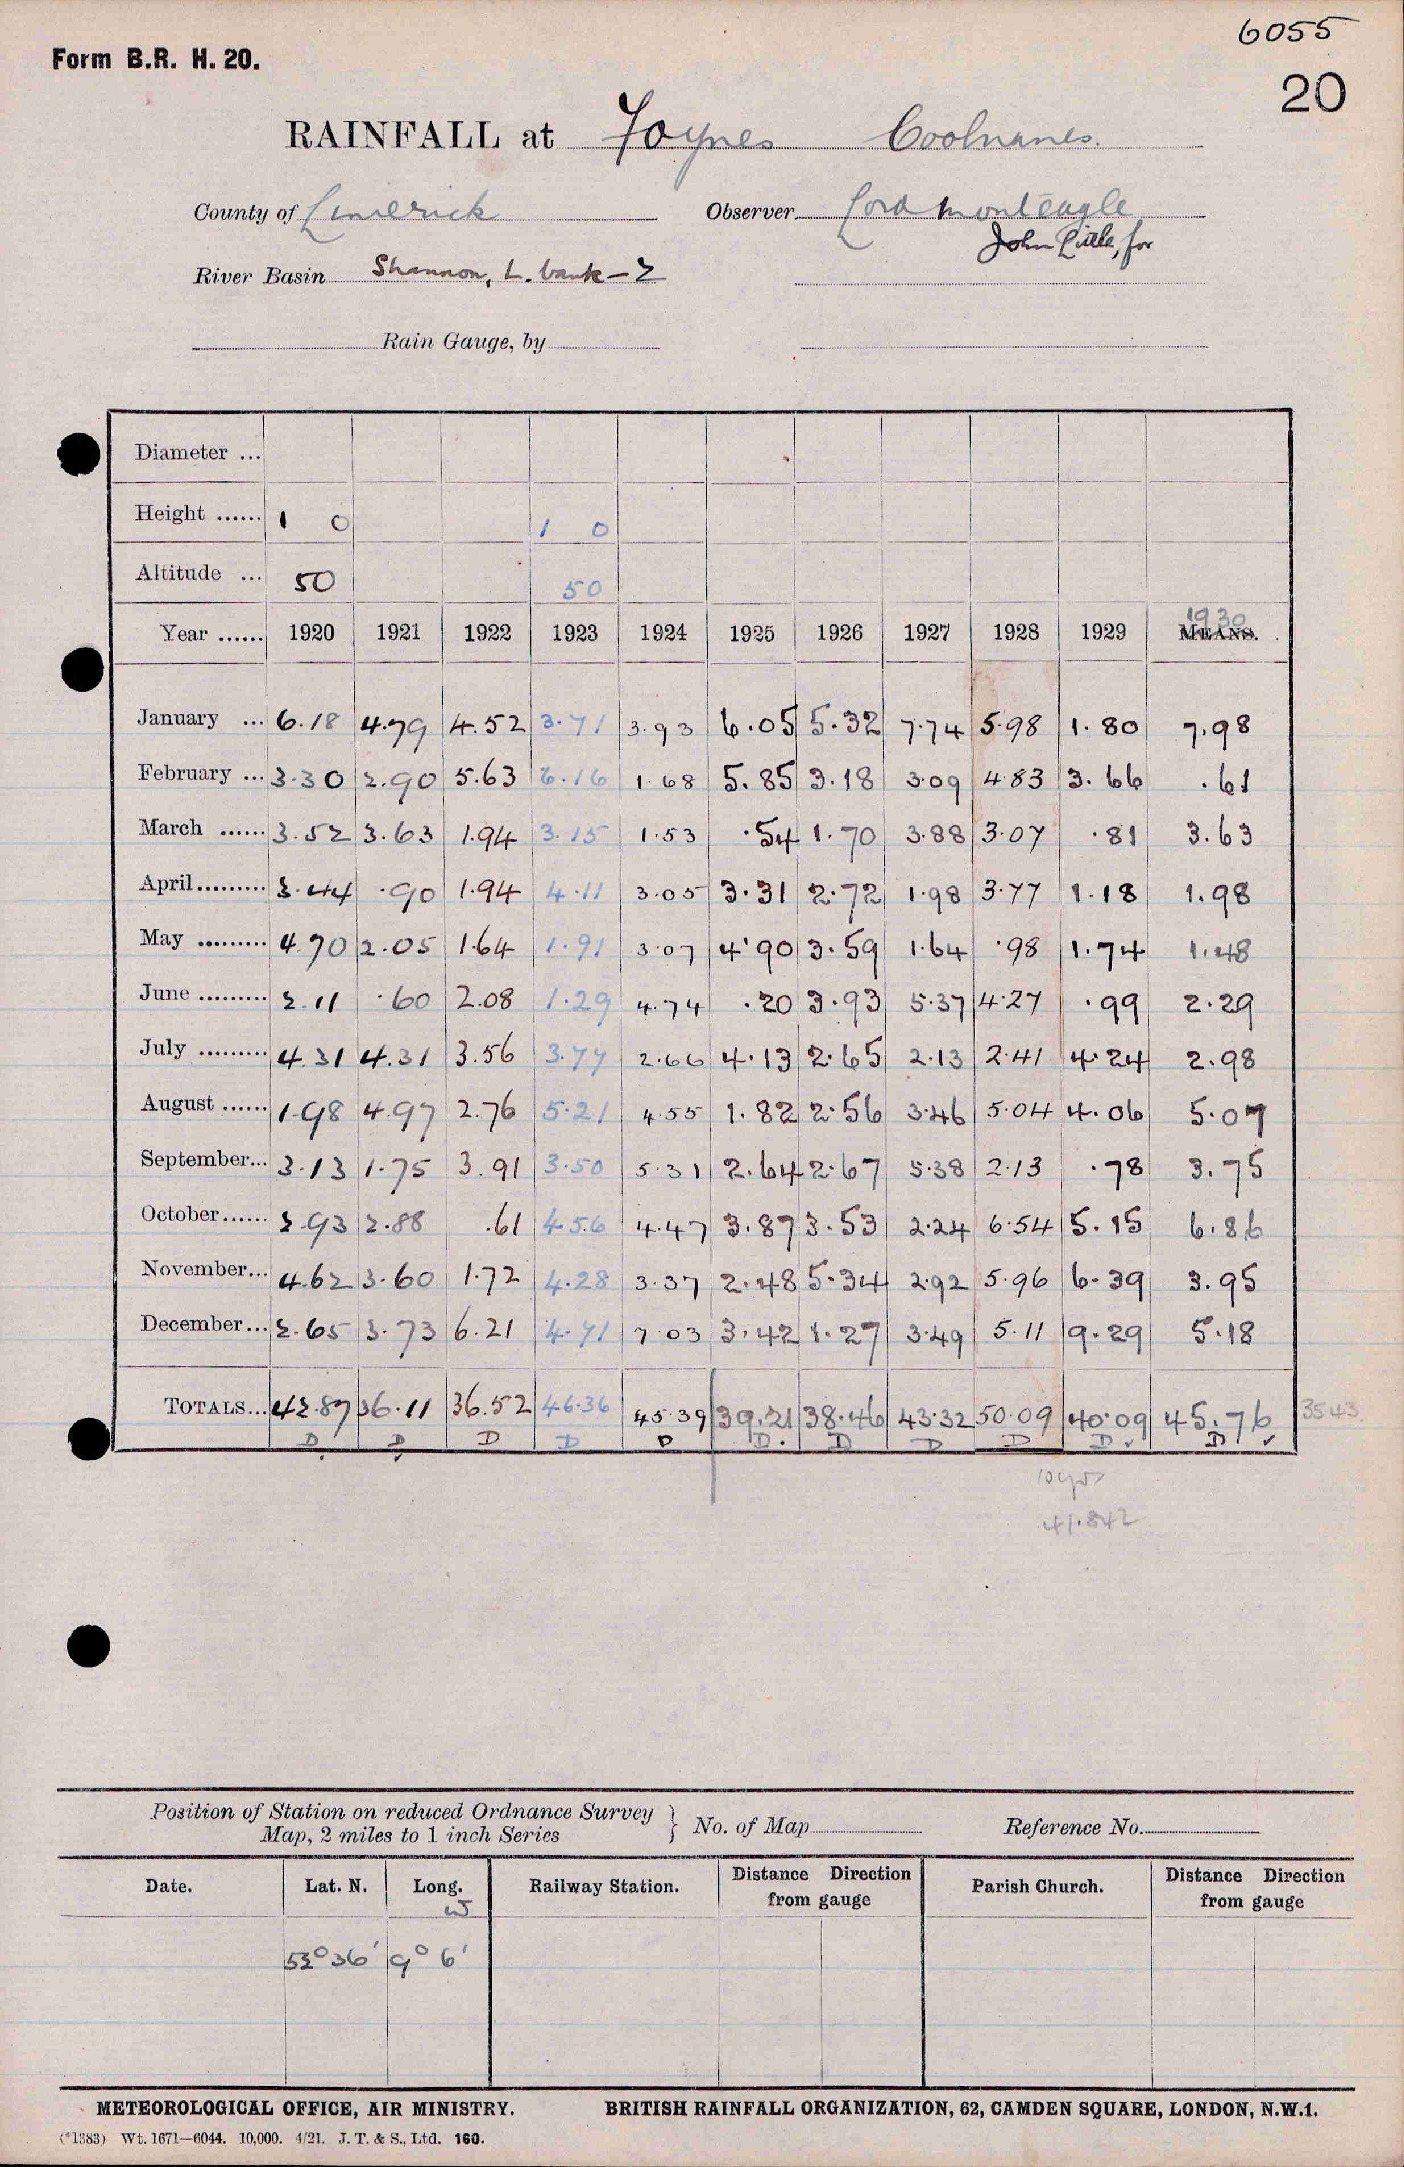 6055
Form B.R. H. 20.
20
RAINFALL at Foynes Coolnanes.
County of Limerick Observer Lord Monteagle
John Little, for
River Basin Shannon, L. bank - 2
Rain Gauge, by
Diameter ...
Height ...... 1 0 1 0
Altitude ... 50 50
1930
Year ...... 1920 1921 1922 1923 1924 1925 1926 1927 1928 1929 MEANS.
January ... 6.18 4.79 4.52 3.71 3.93 6.05 5.32 7.74 5.98 1.80 7.98
February ... 3.30 2.90 5.63 6.16 1.68 5.85 3.18 3.09 4.83 3.66 .61
March ...... 3.52 3.63 1.94 3.15 1.53 .54 1.70 3.88 3.07 .81 3.63
April......... 3.44 .90 1.94 4.11 3.05 3.31 2.72 1.98 3.77 1.18 1.98
May ......... 4.70 2.05 1.64 1.91 3.07 4.90 3.59 1.64 .98 1.74 1.48
June ......... 2.11 .60 2.08 1.29 4.74 .20 3.93 5.37 4.27 .99 2.29
July ......... 4.31 4.31 3.56 3.77 2.66 4.13 2.65 2.13 2.41 4.24 2.98
August ...... 1.98 4.97 2.76 5.21 4.55 1.82 2.56 3.46 5.04 4.06 5.07
September... 3.13 1.75 3.91 3.50 5.31 2.64 2.67 5.38 2.13 .78 3.75
October...... 2.93 2.88 .61 4.56 4.47 3.87 3.53 2.24 6.54 5.15 6.86
November... 4.62 3.60 1.72 4.28 3.37 2.48 5.34 2.92 5.96 6.39 3.95
December... 2.65 3.73 6.21 4.71 7.03 3.42 1.27 3.49 5.11 9.29 5.18
TOTALS... 42.87 36.11 36.52 46.36 45.39 39.21 38.46 43.32 50.09 40.09 45.76 35.43
D D D D D D. D D D D ✓ D ✓
10 yrs
41.842
Position of Station on reduced Ordnance Survey
Map, 2 miles to 1 inch Series } No. of Map Reference No.
Date. Lat. N. Long. Railway Station. Distance Direction from gauge Parish Church. Distance Direction from gauge
W
52° 36' 9° 6'
METEOROLOGICAL OFFICE, AIR MINISTRY. BRITISH RAINFALL ORGANIZATION, 62, CAMDEN SQUARE, LONDON, N.W.1.
(*1383) Wt. 1671—6044. 10,000. 4/21. J. T. & S., Ltd. 160.